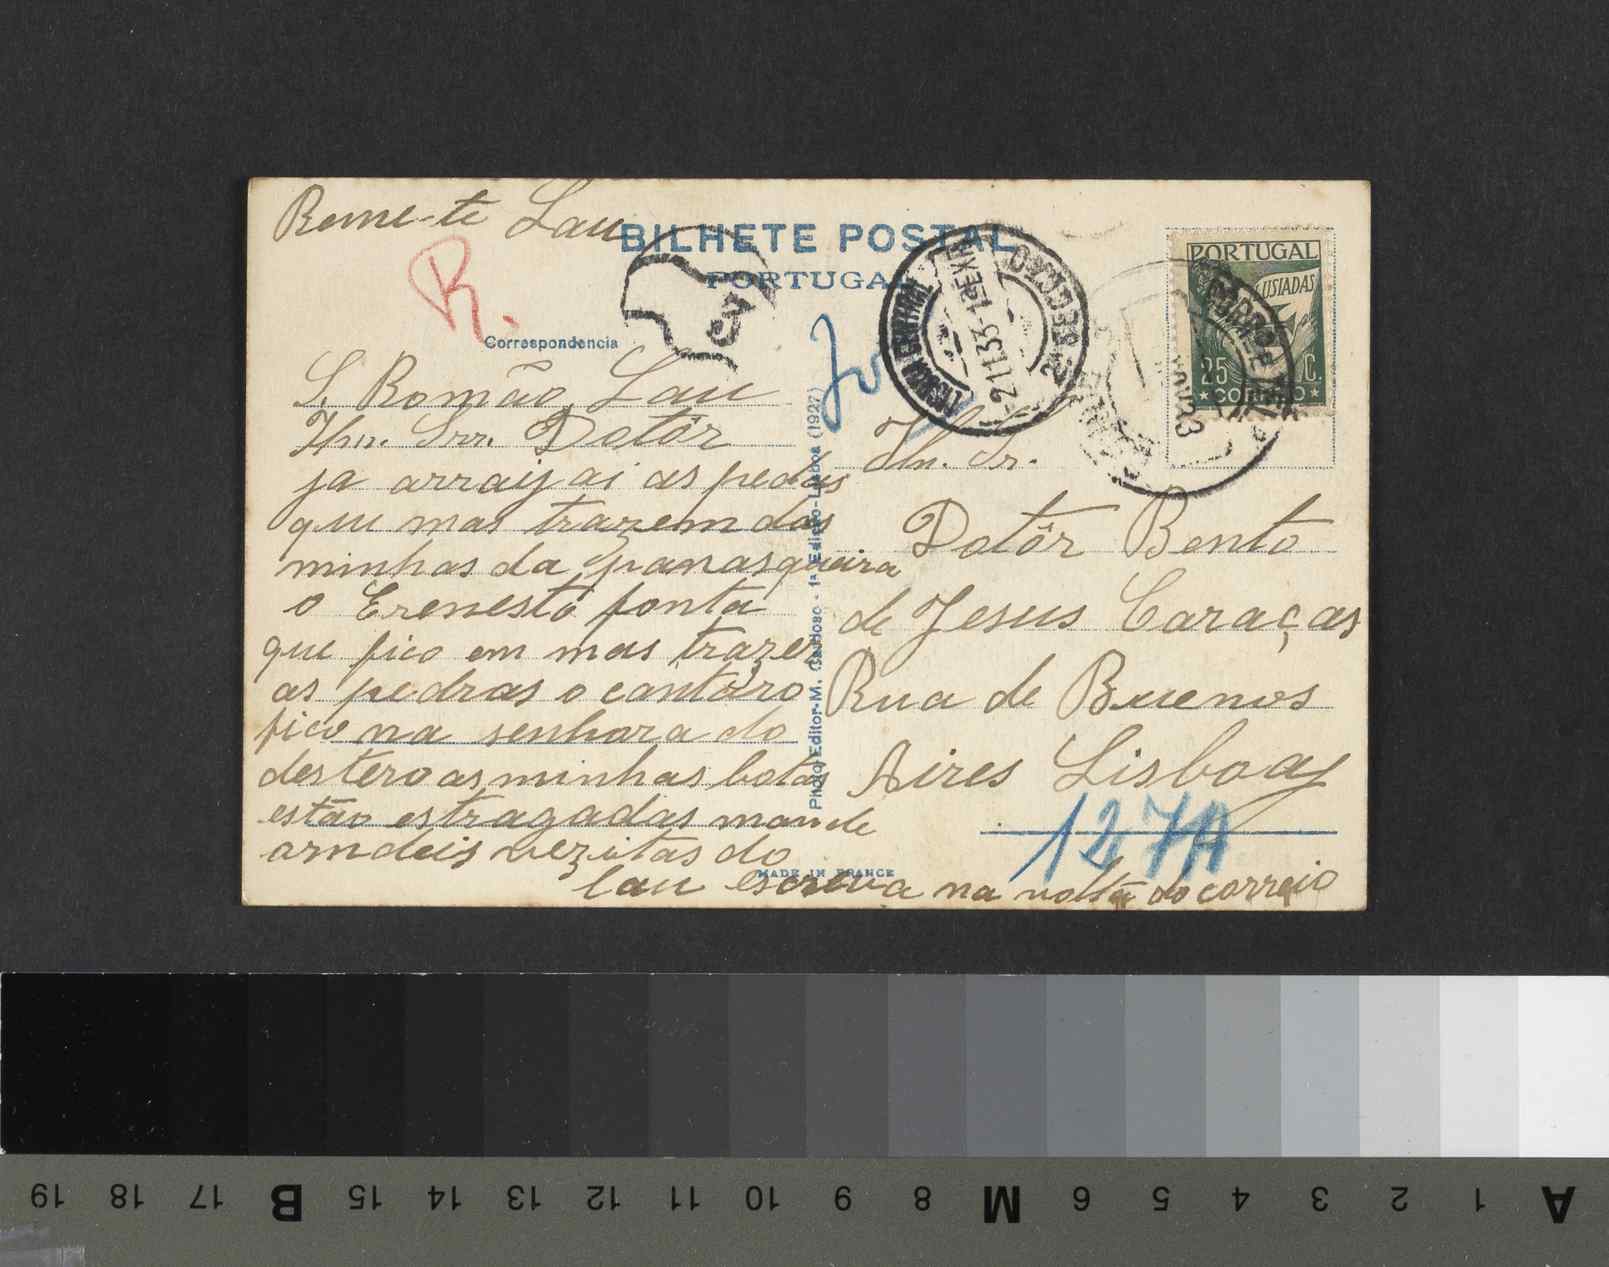 Reme-te Lau
BILHETE POSTAL
PORTUGAL
R.
Correspondencia
3
S. Romão, Lau
Ilm. Srr. Dotôr
ja arraijai as pedras
que mas trazem das
minhas da panasqueira
o Erenesto fonta
que fico em mas trazer
as pedras o cantáro
fico na senhora do
destero as minhas botas
estão estragadas mande
arndeis vezitas do
lau escreva na volta do correio
Photo, Editor-M. Cardoso - 1ª Edição-Lisboa (1927)
MADE IN FRANCE
LISBOA CENTRAL
2ª SECÇÃO
-2 11 33-12
PORTUGAL
LUSIADAS
25 C.
CORREIO
Ilm. Sr.
Dotôr Bento
de Jesus Caraças
Rua de Buenos
Aires Lisboa
127A
19 18 17 B 15 14 13 12 11 10 9 8 M 6 5 4 3 2 1 A